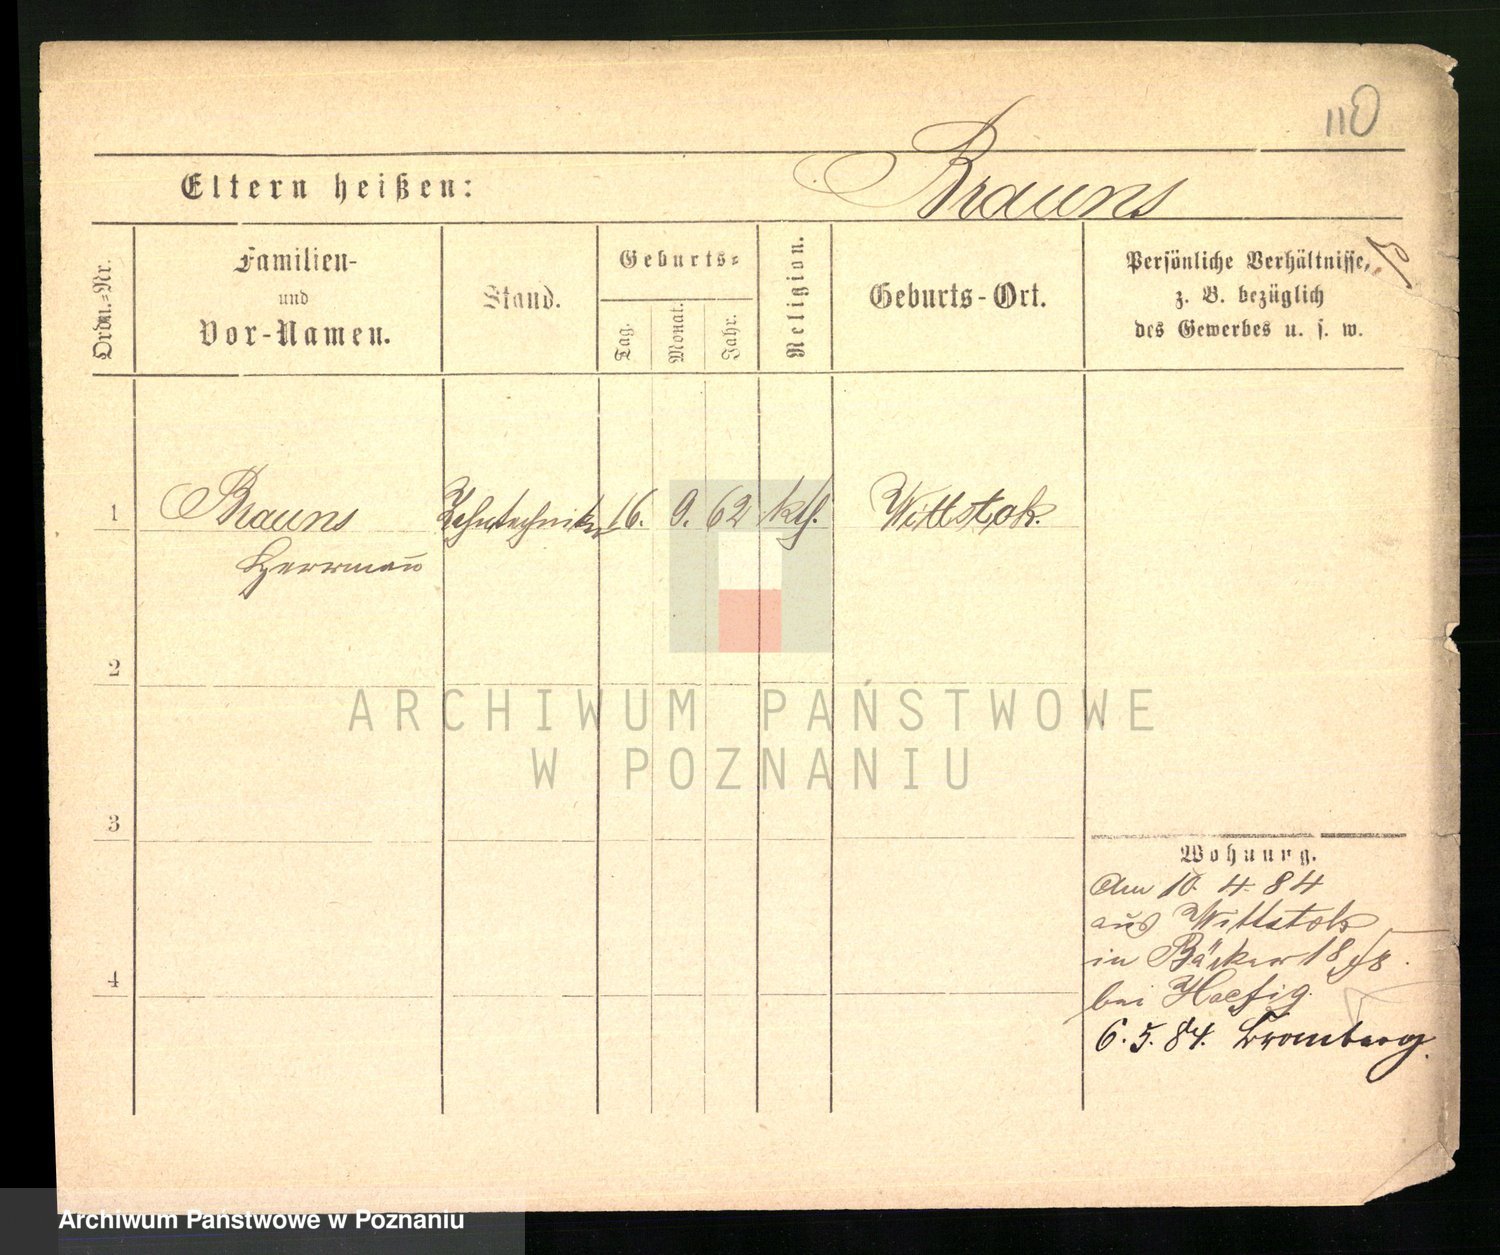 110
Eltern heißen:
Brauns
Ordn.=Nr.
Familien-
und
Vor-Namen.
Stand.
Geburts=
Tag.
Monat.
Jahr.
Religion.
Geburts-Ort.
Persönliche Verhältnisse,
z. B. bezüglich
des Gewerbes u. s. w.
1 Brauns Zahntechniker 16. 9. 62 kth. Wittstok.
Herrmann
2
3
4
Wohnung.
Am 10. 4. 84
aus Wittstok
in Bäcker 18
bei
6. 5. 84. Bromberg.
ARCHIWUM PAŃSTWOWE
W POZNANIU
Archiwum Państwowe w Poznaniu